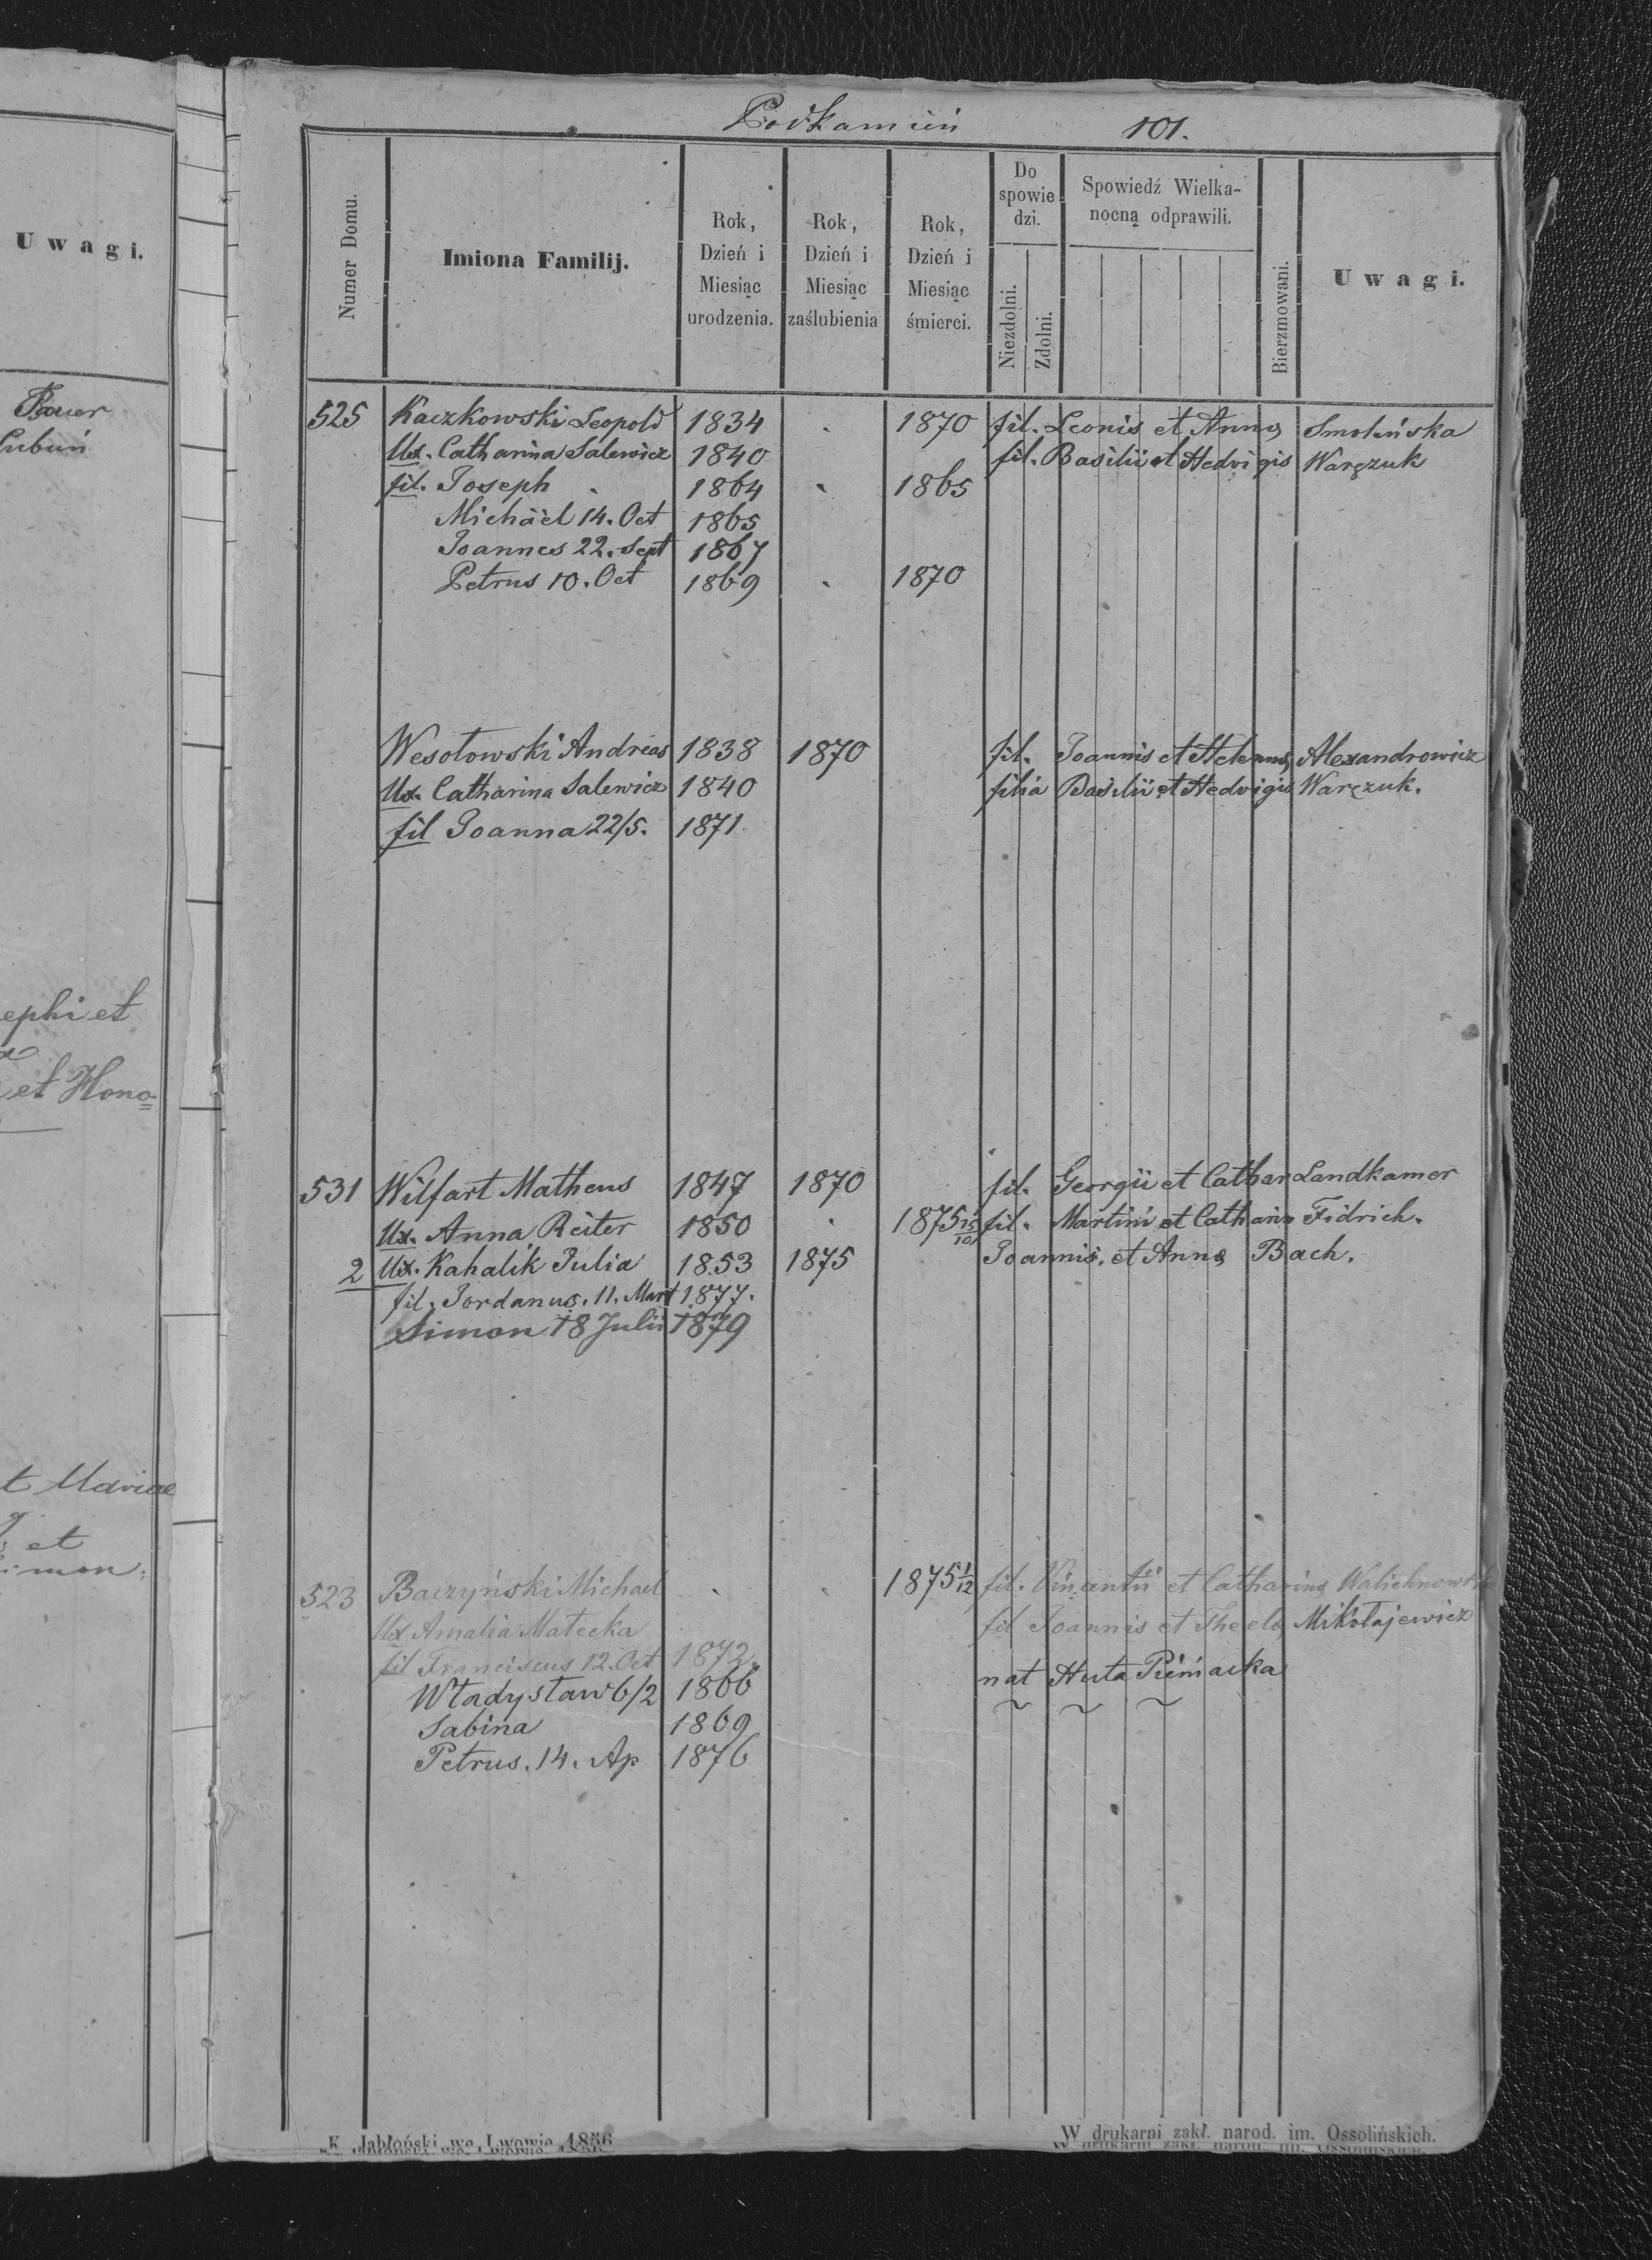 Podkamień 101.
Numer Domu.
Imiona Familij.
Rok, Dzień i Miesiąc urodzenia.
Rok, Dzień i Miesiąc zaślubienia
Rok, Dzień i Miesiąc śmierci.
Do spowiedzi.
Niezdolni.
Zdolni.
Spowiedź Wielkanocną odprawili.
Bierzmowani.
U w a g i.
525 Kaczkowski Leopold 1834 . 1870 fil. Leonis et Anna Smoleńska
Ux. Catharina Salewicz 1840 fil. Basilii et Hedvigis Waręzuk
fil. Joseph . 1864 . 1865
Michäel 14. Oct 1865
Joannes 22. Sept 1867
Petrus 10. Oct 1869 . 1870
Wesołowski Andreas 1838 1870 fil. Joannis et Helenna Alexandrowicz
Ux. Catharina Salewicz 1840 filia Basilii et Hedvigis Waręzuk.
fil Joanna 22/5. 1871
531 Wilfart Matheus 1847 1870 fil. Georgii et Cathar Landkamer
Ux. Anna Reiter 1850 . 1875 15/10 fil. Martini et Catharin Fidrich.
2 Ux. Kahalik Julia 1853 1875 Joannis. et Anna Bach.
fil. Jordanus. 11. Mart 1877.
Simon 18 Julii 1879
523 Baczyński Michael . . 1875 1/12 fil. Vincentii et Catharina
Ux Amalia Małecka fil Joannis et Thecla Mikołajewicz
fil Franciscus 12. Oct 1872.
Władysław 6/2 1866 nat Huta Pieniacka
Sabina 1869 ~ ~ ~
Petrus. 14. Ap 1876
K. Jabłoński we Lwowie 1856
W drukarni zakł. narod. im. Ossolińskich.
U w a g i.
Bauer
ephi et
et Hono=
t Mariae
et
imon.